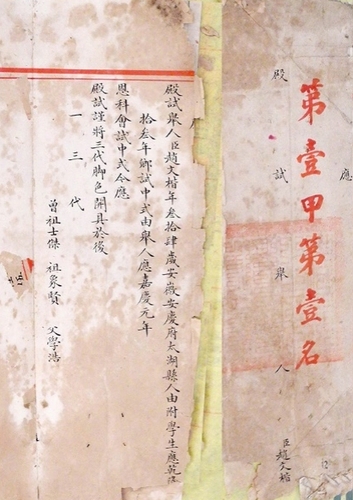 第壹甲第壹名
殿試舉人
臣趙文楷
殿試舉人臣趙文楷年叁拾肆歲安徽安慶府太湖縣人由附學生應
拾叁年鄉試中式由舉人應嘉慶元年
恩科會試中式今應
殿試謹將三代腳色開具於後
一三代
曾祖士傑 祖象賢 父學浩